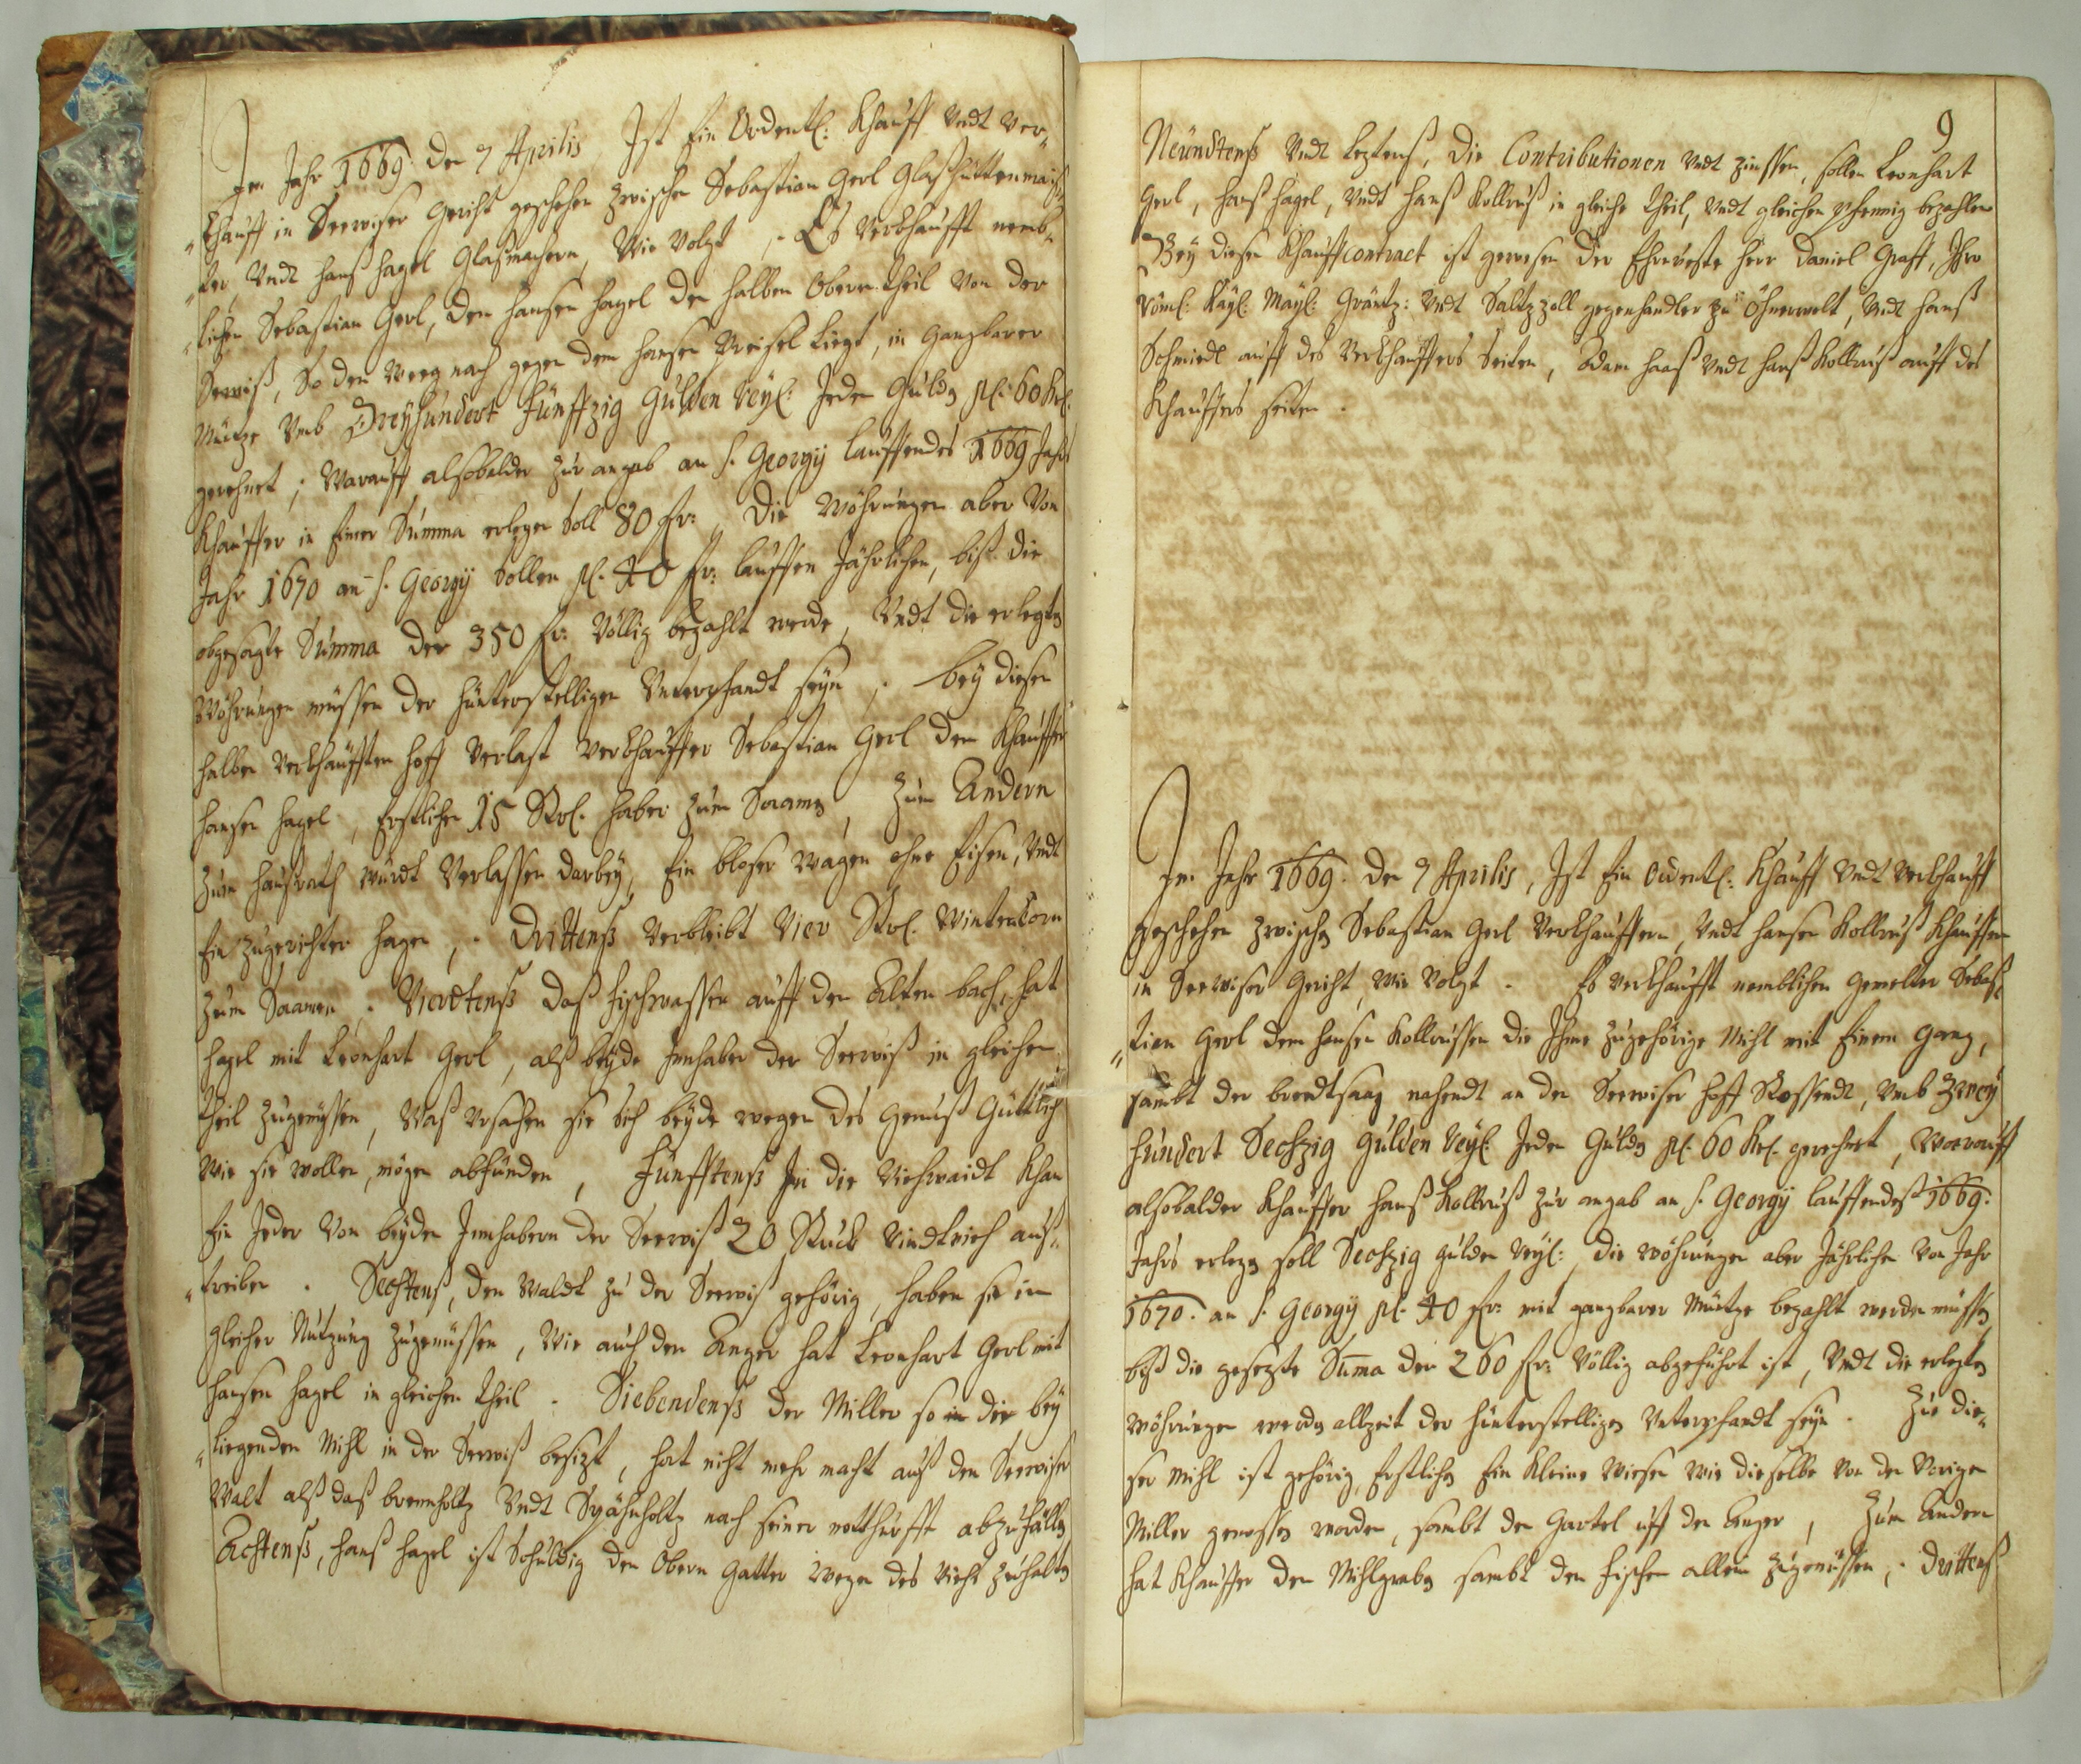 Im Jahr 1669. den 7 Aprilis, Ist Ein Ordentl: Khauff Undt Ver-
„khauff in Seewiser Gericht geschehen zwischen Sebastian Gerl Glaßhüttenmais-
„ter, Undt Hanß Hagel Glasmachern, Wie Volgt, . Es Verkhaufft nemb-
„lichen Sebastian Gerl, dem Hansen Hagel den halben Obern theil Von der
Seewiß, So den Weeg nach gegen dem Hansen Preisel liegt, in Gangbarer
Müntze Umb Dreyhundert Fünffzig Gulden Reyl: Jeden Gulden pl: 60 Krl:
gerechnet; Warauff alsobalden zur angab an S. Georgij lauffendes 1669 Jahrs
Khauffer in Einer Summa erlegen soll 80 fr: , Die Wöhrungen aber Von
Jahr 1670 an S. Georgij sollen pl. 40 fr: lauffen Jährlichen, biß die
obgesagte Summa der 350 fr: Völlig bezahlt werde, Undt die erlegten
Wöhrungen müssen der hünterstelligen Unterpfandt seyn, . bey diesen
halben Verkhaufften Hoff Verlast Verkhauffer Sebastian Gerl dem Khauffer
Hansen Hagel, Erstlichen 15 Strl. Haber zum Saamen, Zum Andern
Zum Haußrath würdt Verlassen darbey, Ein bloser Wagen ohne Eisen, Undt
Ein zugerichter Hagen, . Drittenß Verbleibt Vier Strl. Winterkorn
zum Saamen. Vierdtenß daß Fischwasser auff den Alten bach, hat
Hagel mit Leonhart Gerl, alß beyde Innhaber der Seewiß in gleichen
theil zugenüssen, Waß Ursachen sie sich beyde wegen des Genuß Güttlich
Wie sie wollen, mögen abfünden, Fünfftenß In die Viehwaidt Khan
Ein Jeder Von beyden Innhabern der Seewiß 20 Stuck Rindtvieh auß-
„treiben. Sechtenß, den Waldt zu der Seewiß gehörig, haben sie im
gleicher Nutzung zugenüssen, Wie auch den Anger hat Leonhart Gerl mit
Hansen Hagel in gleichen theil. Siebendenß der Miller so in die bey
„liegenden Mihl in der Seewiß besitzt, hat nicht mehr macht auß den Seewiser
Walt alß daß brennholtz Undt Spähnholtz nach seiner notthurfft abzufällen
Achtenß, Hanß Hagel ist Schuldig den Obern Gatter Wegen des Viehs zuhalten
9
Neundtenß Undt Leztenß, die Contributionen Undt Zinssen, sollen Leonhart
Gerl, Hanß Hagel, Undt Hanß Kollruß in gleiche theil, Undt gleichen pfennig bezahlen
Bey diesen Khauffcontract ist gewesen der Ehrnveste Herr Daniel Graff, Ihro
Röml: Kayl: Mayl: Gräntz: Undt Saltzzoll gegenhandler zu Öhnerwelt, Undt Hanß
Schmiedt auff des Verkhauffers Seiten, Adam Haaß Undt Hanß Kollruß auff des
Khauffers seiten.
Im Jahr 1669. den 7 Aprilis, Ist Ein Ordentl: Khauff Undt Verkhauff
geschehen zwischen Sebastian Gerl Verkhauffern, Undt Hansen Kollruß Khauffern
in Seewiser Gericht, Wie Volgt . Es Verkhaufft nemblichen gemelter Sebas-
„tian Gerl dem Hansen Kollrussen die Ihme zugehörige Mihl mit Einem Gang,
sambt der bredtsaag nahendt an den Seewiser Hoff Stossendt, Umb Zwey
hundert Sechzig Gulden Reyl: Jeden Gulden pl: 60 Krl. gerechnet, Warauff
alsobalden Khauffer Hanß Kollruß zur angab an S. Georgij lauffendeß 1669:
Jahrs erlegen soll Sechzig Gulden Reyl: , Die Wöhrungen aber Jährlichen Von Jahr
1670. an S. Georgij pl. 40 fr: mit gangbarer Müntze bezahlt werden müssen
biß die gesezte Suma der 260 fr: Völlig abgeführt ist, Undt die erlegten
Wöhrungen werden allzeit der hünterstelligen Unterpfandt seyn. Zu die-
ser Mihl ist gehörig, Erstlichen Ein Kleine Wiesen Wie dieselbe Von den Vorigen
Miller genossen worden, sambt den Gartel uff den Anger, Zum Andern
hat Khauffer den Mihlgraben sambt den Fischen allein zugenüssen, . Drittenß